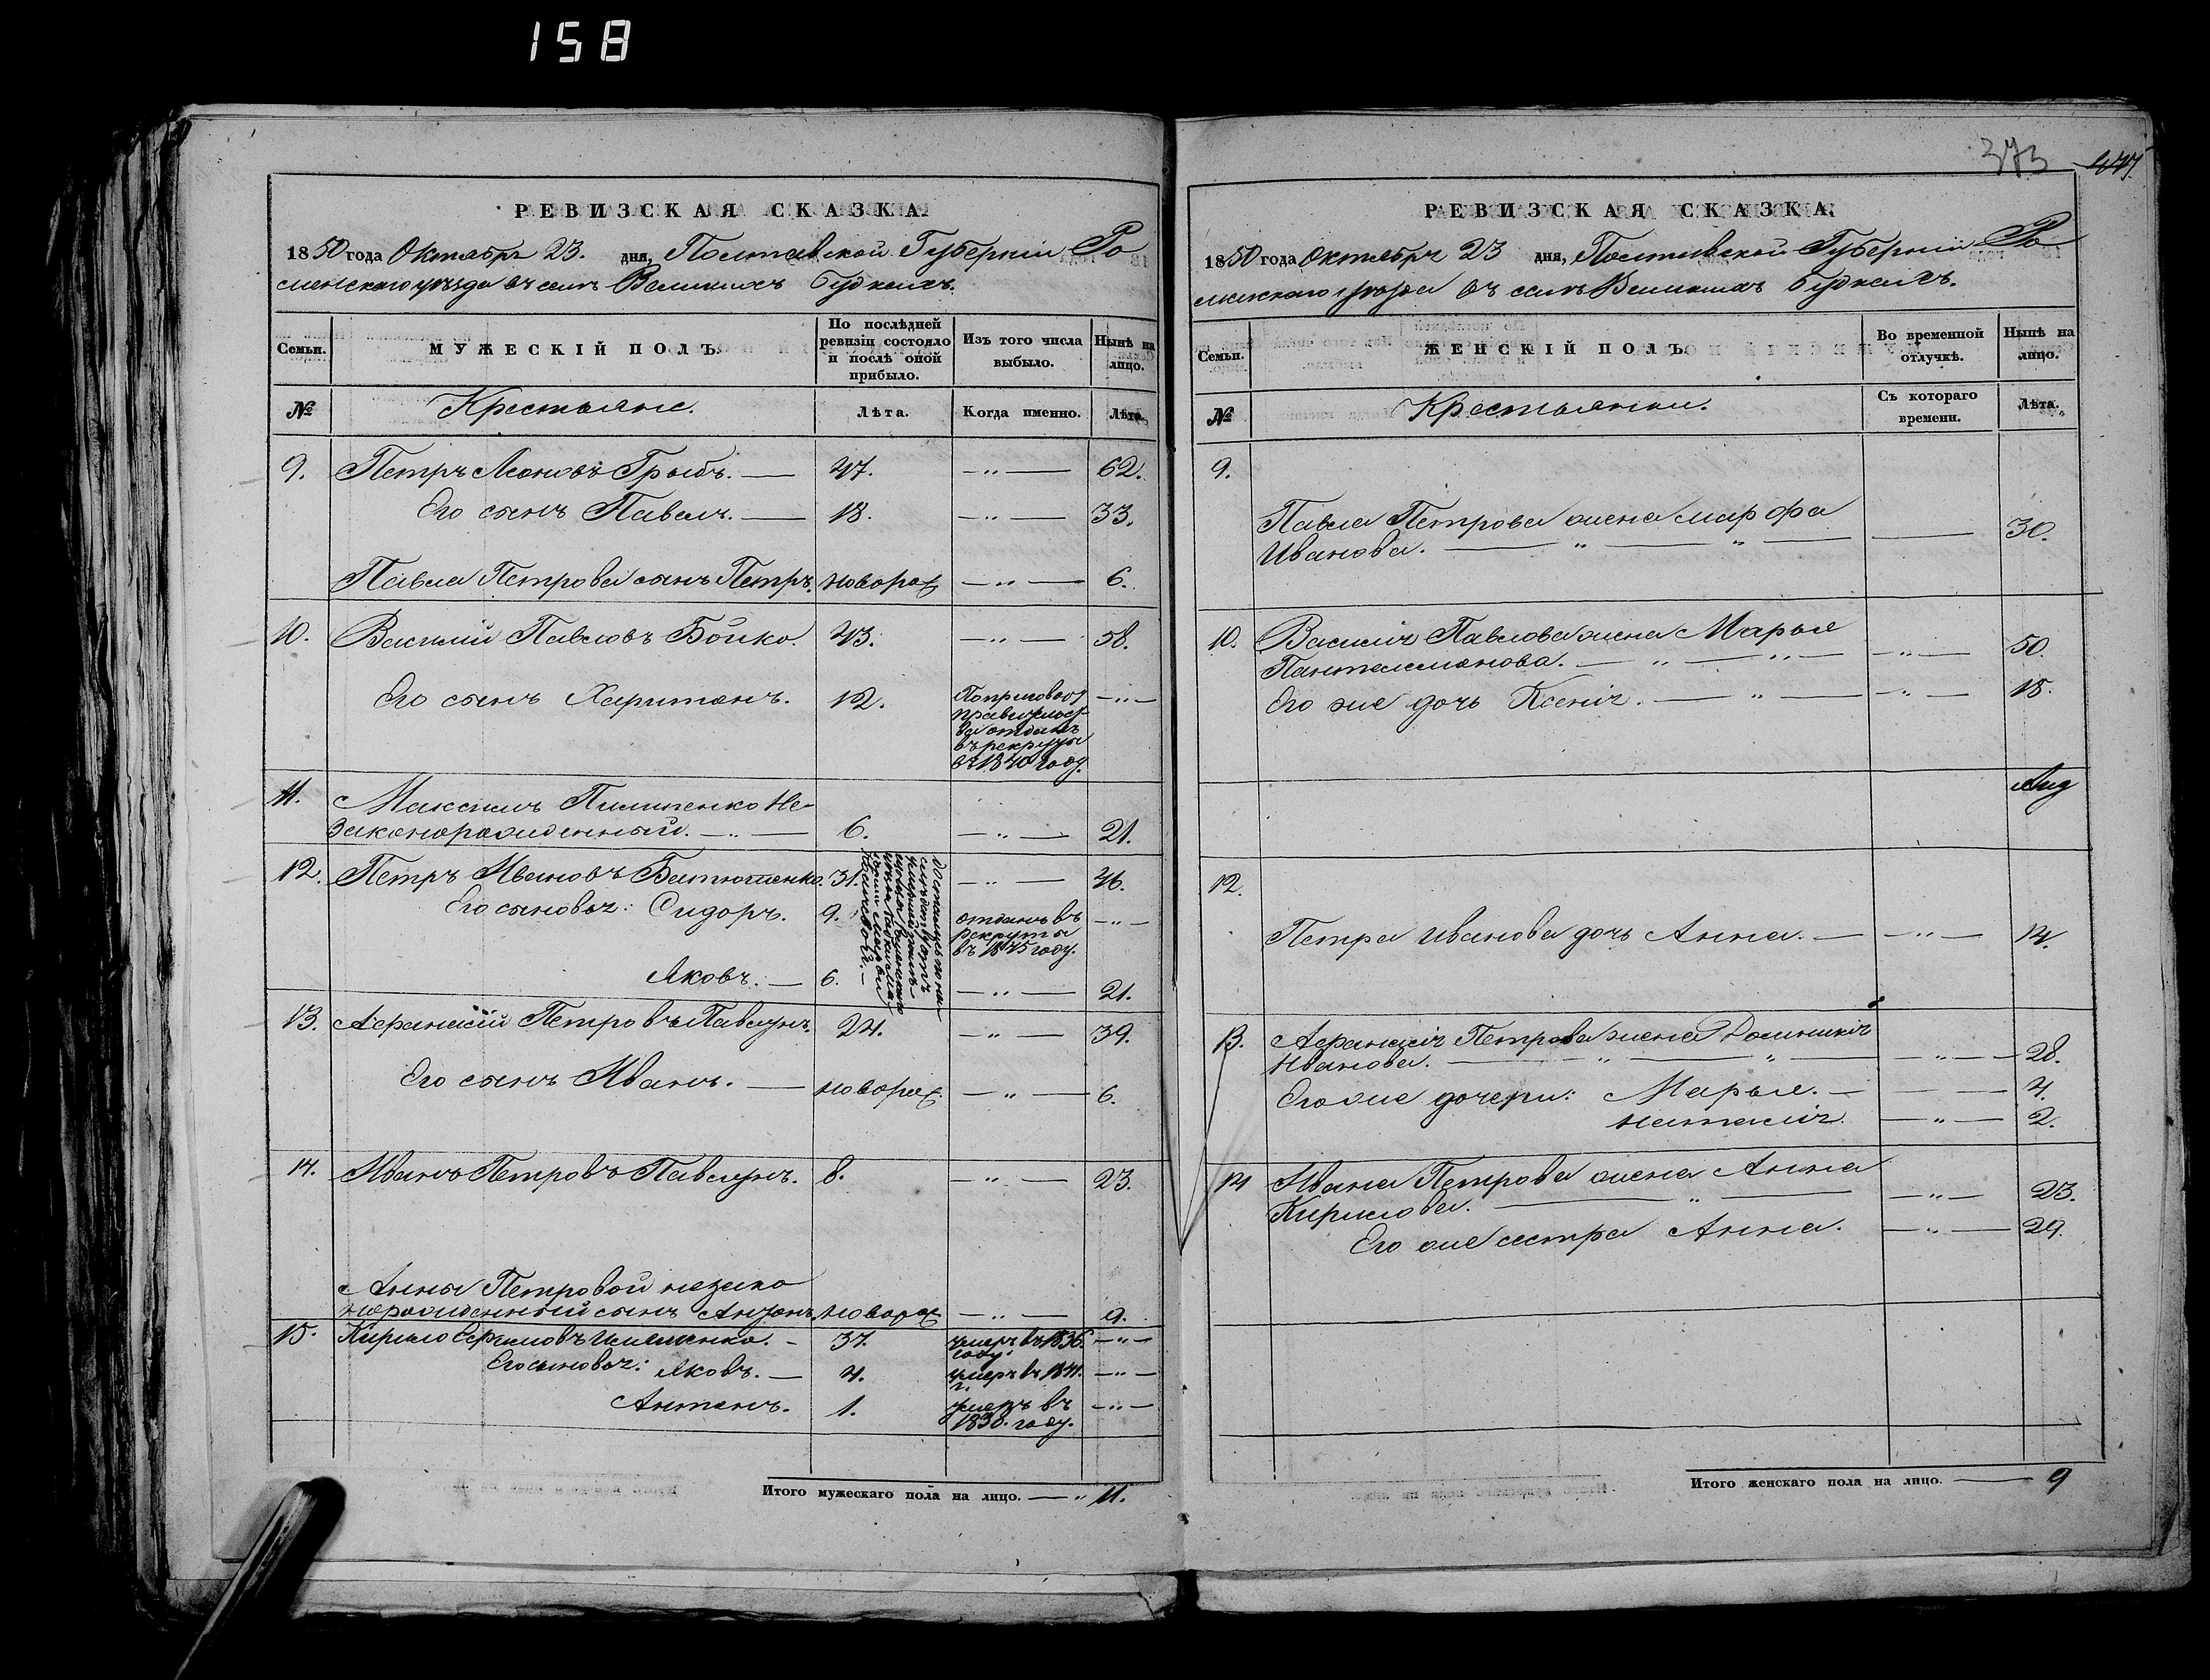 158
РЕВИЗСКАЯ СКАЗКА.
1850 года Октября 23. дня, Полтавской Губерніи Ро
менскаго уѣзда въ селѣ Великихъ Будкахъ.
Семьи.
МУЖЕСКІЙ ПОЛЪ.
По послѣдней
ревизіи состояло
и послѣ оной
прибыло.
Изъ того числа
выбыло.
Нынѣ на
лицо.
№
Крестьяне.
Лѣта.
Когда именно.
Лѣта.
9. Петръ Леоновъ Грыбъ. — 47. — „ — 62.
Его сынъ Павелъ. — 18. — „ — 33.
Павла Петрова сынъ Петръ. новорож — „ — 6.
10. Василій Павловъ Бойко. 43. — „ — 58.
Его сынъ Харитонъ. 12. — „ —
отданъ
въ рекруты
въ 1840 году.
11. Максимъ Пилипенко Не-
законорожденный. — „ — 6. — „ — 21.
12. Петръ Ивановъ Батютенко. 31. — „ — 46.
Его сыновья: Сидоръ. 9. отданъ въ — „ —
рекруты
въ 1845 году.
Яковъ. — 6. — „ — 21.
13. Афанасій Петровъ Павлунъ. 24. — „ — 39.
Его сынъ Иванъ. — новорож. — „ — 6.
14. Иванъ Петровъ Павлунъ. 8. — „ — 23.
Анны Петровой незако
норожденный сынъ новорож — „ — 9.
15. Кирило 37. умеръ въ 1836. — „ —
году.
Его сыновья: Яковъ. — 4. умеръ въ 1841. — „ —
г.
Антонъ. 1. умеръ въ — „ —
1838. году.
Итого мужескаго пола на лицо. — „ 11.
373 477
РЕВИЗСКАЯ СКАЗКА.
1850 года Октября 23 дня, Полтавской Губерніи Ро
менскаго уѣзда въ селѣ Великихъ Будкахъ.
Семьи.
ЖЕНСКІЙ ПОЛЪ
Во временной
отлучкѣ.
Нынѣ на
лицо.
№
Крестьянки.
Съ котораго
времени.
Лѣта.
9.
Павла Петрова жена Марфа
Иванова. — „ — „ — — 30.
10. Василія Павлова жена Марья
Пантелимонова. — „ — „ — — „ — 50.
Его же дочь Ксенія. — „ — — „ — 18.
12.
Петра Иванова дочь Анна. — — „ — 14.
13. Афанасія Петрова жена Домникія
Иванова. — „ — „ — — „ — 28.
Его же дочери: Марья. — — — 4.
Наталія. — „ — 2.
14 Ивана Петрова жена Анна
Кирилова. — „ — — „ — 23.
Его же сестра Анна. — „ — 29.
Итого женскаго пола на лицо. — 9